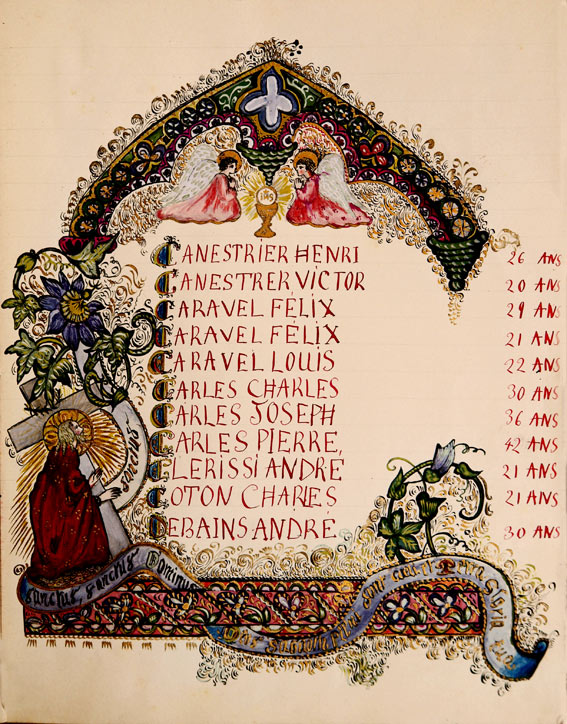 CANESTRIER HENRI 26 ANS
CANESTRER VICTOR 20 ANS
CARAVEL FÉLIX 29 ANS
CARAVEL FÉLIX 21 ANS
CARAVEL LOUIS 22 ANS
CARLES CHARLES 30 ANS
CARLES JOSEPH 36 ANS
CARLES PIERRE, 42 ANS
CLERISSI ANDRÉ 21 ANS
COTON CHARLES 21 ANS
DEBAINS ANDRÉ 30 ANS
Sanctus
Sanctus, Sanctus Dominus